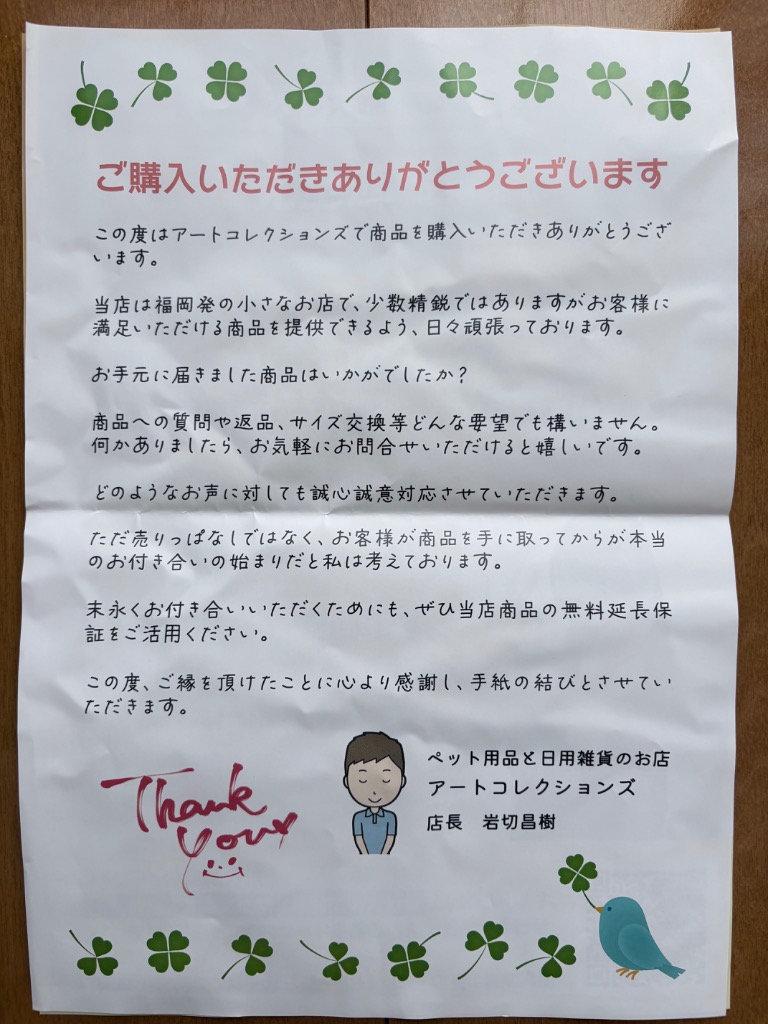 ご購入いただきありがとうございます
この度はアートコレクションズで商品を購入いただきありがとうござ
います。
当店は福岡発の小さなお店で、少数精鋭ではありますがお客様に
満足いただける商品を提供できるよう、日々頑張っております。
お手元に届きました商品はいかがでしたか？
商品への質問や返品、サイズ交換等どんな要望でも構いません。
何かありましたら、お気軽にお問合せいただけると嬉しいです。
どのようなお声に対しても誠心誠意対応させていただきます。
ただ売りっぱなしではなく、お客様が商品を手に取ってからが本当
のお付き合いの始まりだと私は考えております。
末永くお付き合いいただくためにも、ぜひ当店商品の無料延長保
証をご活用ください。
この度、ご縁を頂けたことに心より感謝し、手紙の結びとさせてい
ただきます。
Thank
You
ペット用品と日用雑貨のお店
アートコレクションズ
店長　岩切昌樹